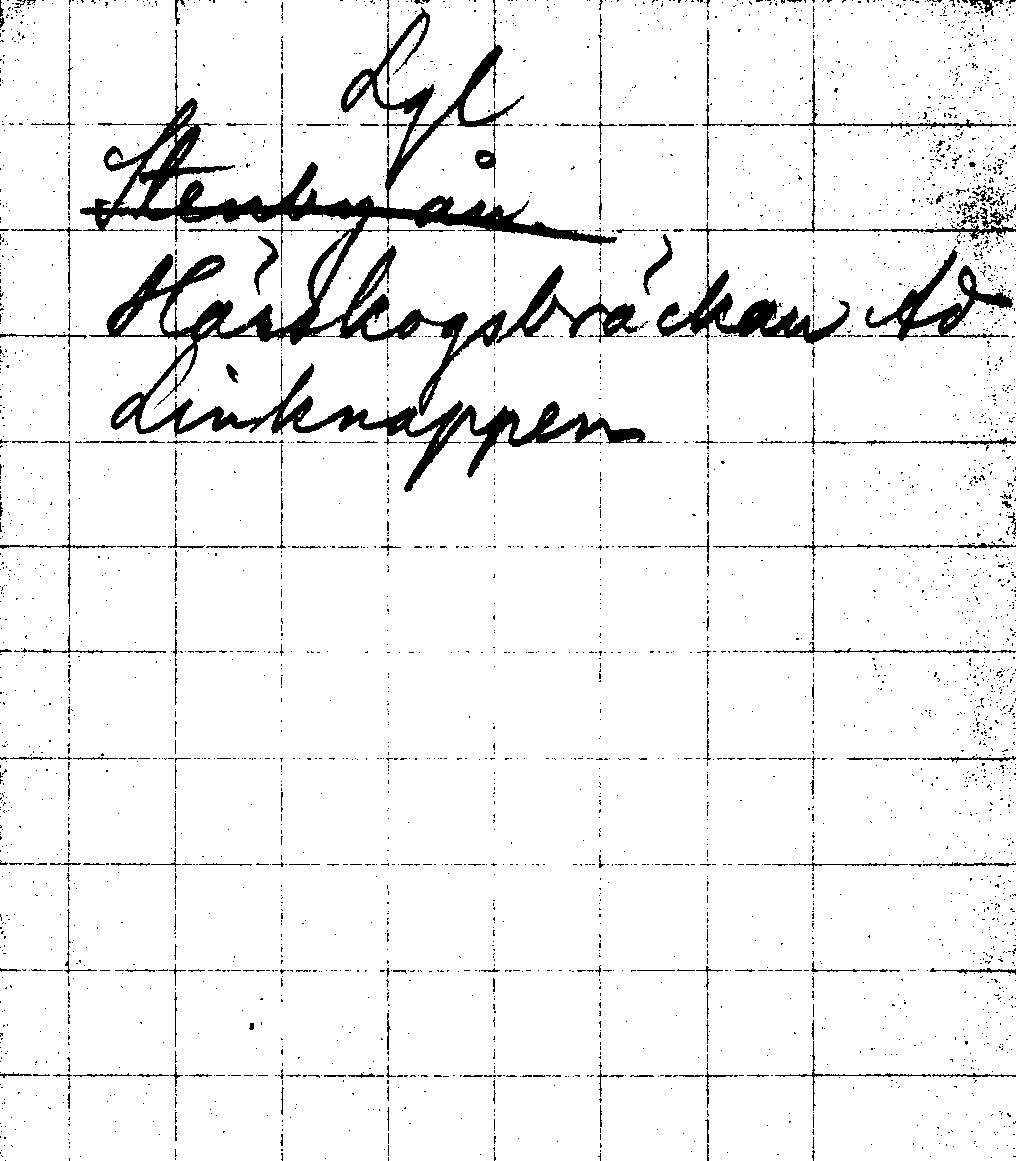 Lgl
Stenby ån
Härskogsbräckan Ad
Linknappen